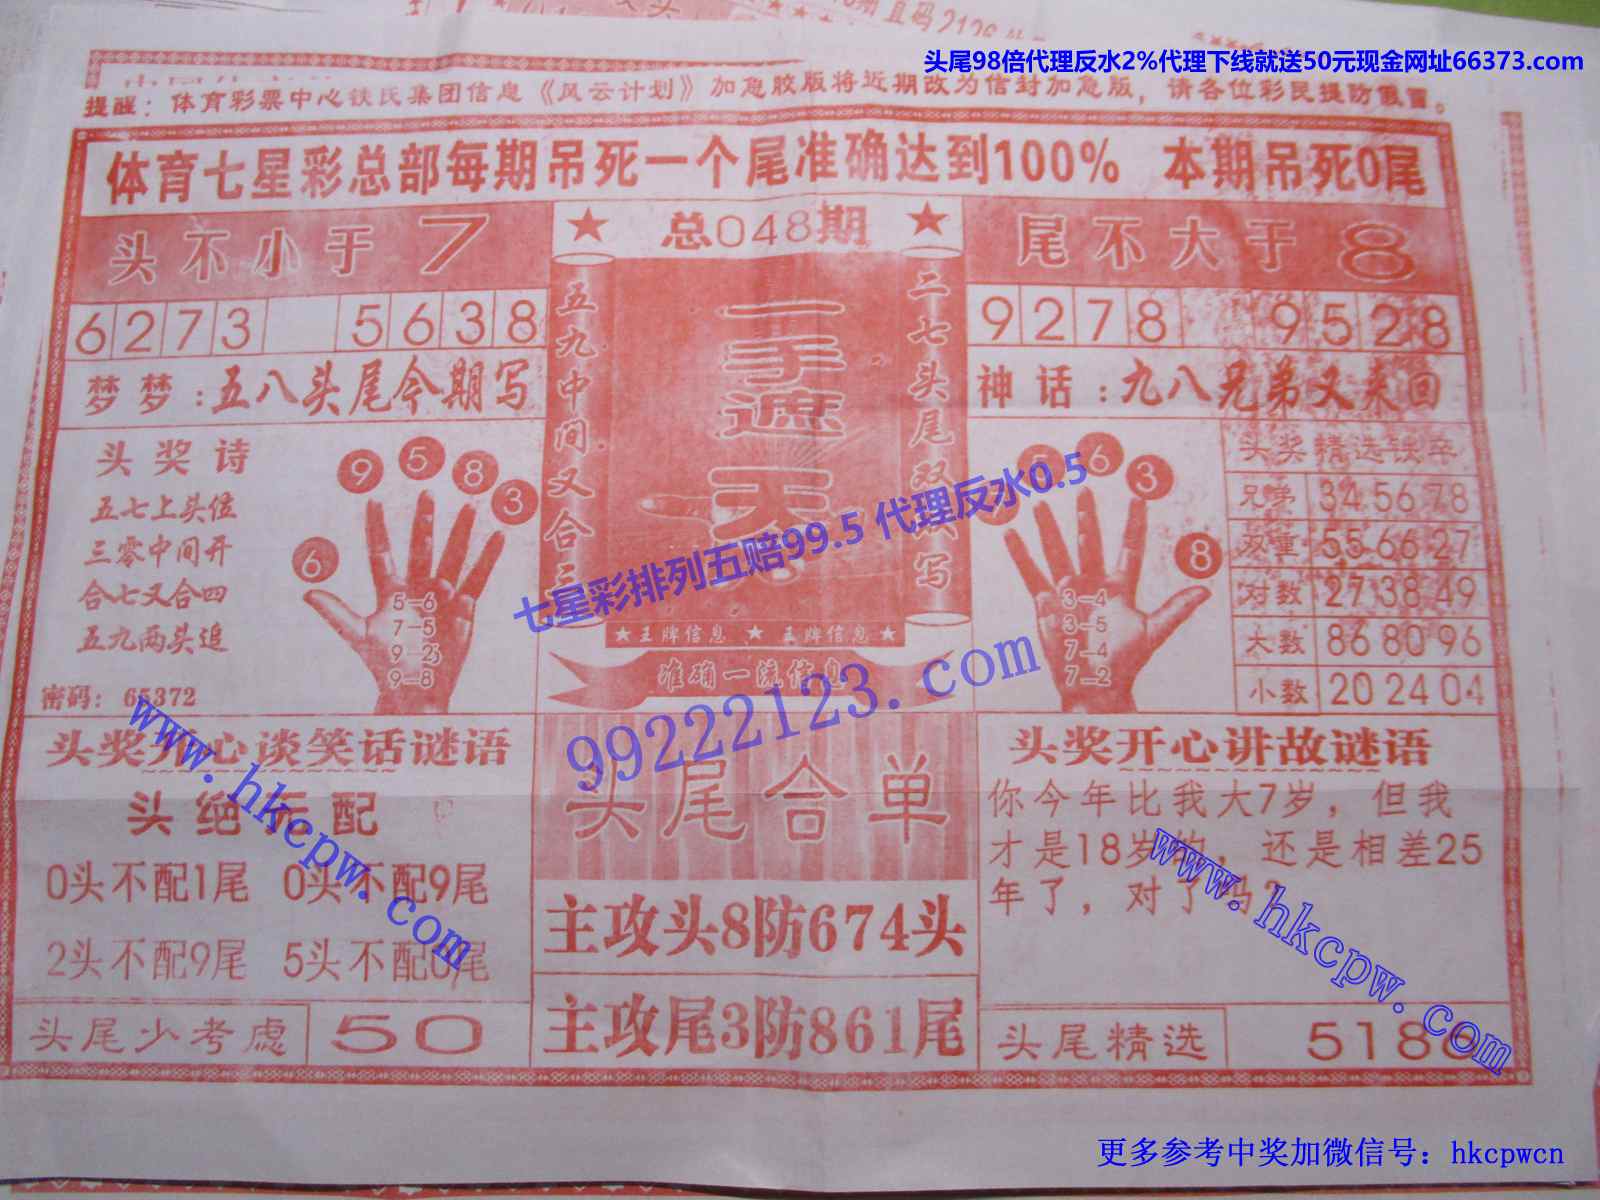 头尾98倍代理反水2%代理下线就送50元现金网址66373.com
提醒：体育彩票中心铁氏集团信息《风云计划》加急胶版将近期改为信封加急版，请各位彩民提防假冒。
体育七星彩总部每期吊死一个尾准确达到100% 本期吊死0尾
头不小于7
总048期
尾不大于8
6273 5638
9278 9528
五九中间又合三
一手遮天
二七头尾双
写
梦梦：五八头尾今期写
神话：九八兄弟又来回
头奖诗
五七上头位
三零中间开
合七又合四
五九两头追
密码：65372
6 9 5 8 3
5-6
7-5
9-2
9-8
5 6 3 8
3-4
3-5
7-4
7-2
头奖精选铁卒
兄弟 34 56 78
双重 55 66 27
对数 27 38 49
大数 86 80 96
小数 20 24 04
七星彩排列五赔99.5 代理反水0.5
★王牌信息 ★ 王牌信息★
准确一流信息
99222123.com
头奖开心谈笑话谜语
头绝无配
0头不配1尾 0头不配9尾
2头不配9尾 5头不配0尾
头尾少考虑 50
www.hkcpw.com
头尾合单
主攻头8防674头
主攻尾3防861尾
头奖开心讲故谜语
你今年比我大7岁，但我
才是18岁的，还是相差25
年了，对了吗？
头尾精选 5186
www.hkcpw.com
更多参考中奖加微信号：hkcpwcn